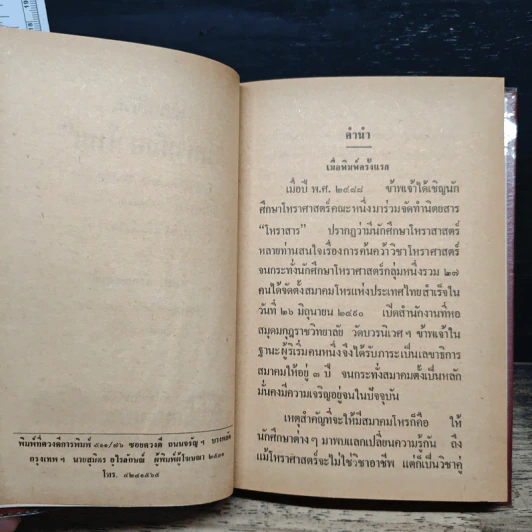 พิมพ์ที่ดวงดีการพิมพ์ ๕๑๑/๗๖ ซอยดวงดี ถนนจรัญฯ บางพลัด
กรุงเทพฯ นายสุมิตร อุไรลักษณ์ ผู้พิมพ์ผู้โฆษณา ๒๕๓๑
โทร. ๔๒๔๑๕๖๕
คำนำ
เมื่อพิมพ์ครั้งแรก
เมื่อปี พ.ศ. ๒๔๘๘ ข้าพเจ้าได้เชิญนัก
ศึกษาโหราศาสตร์คณะหนึ่งมาร่วมจัดทำนิตยสาร
“โหราสาร” ปรากฏว่ามีนักศึกษาโหราสาสตร์
หลายท่านสนใจเรื่องการค้นคว้าวิชาโหราศาสตร์
จนกระทั่งนักศึกษาโหราศาสตร์กลุ่มหนึ่งรวม ๒๗
คนได้จัดตั้งสมาคมโหรแห่งประเทศไทยสำเร็จใน
วันที่ ๒๖ มิถุนายน ๒๔๙๐ เปิดสำนักงานที่หอ
สมุดมกุฎราชวิทยาลัย วัดบวรนิเวศฯ ข้าพเจ้าใน
ฐานะผู้ริเริ่มคนหนึ่งจึงได้รับภาระเป็นเลขาธิการ
สมาคมให้อยู่ ๓ ปี จนกระทั่งสมาคมตั้งเป็นหลัก
มั่นคงมีความเจริญอยู่จนในปัจจุบัน
เหตุสำคัญที่จะให้มีสมาคมโหรก็คือ ให้
นักศึกษาต่างๆ มาพบแลกเปลี่ยนความรู้กัน ถึง
แม้โหราศาสตร์จะไม่ใช่วิชาอาชีพ แต่ก็เป็นวิชาคู่